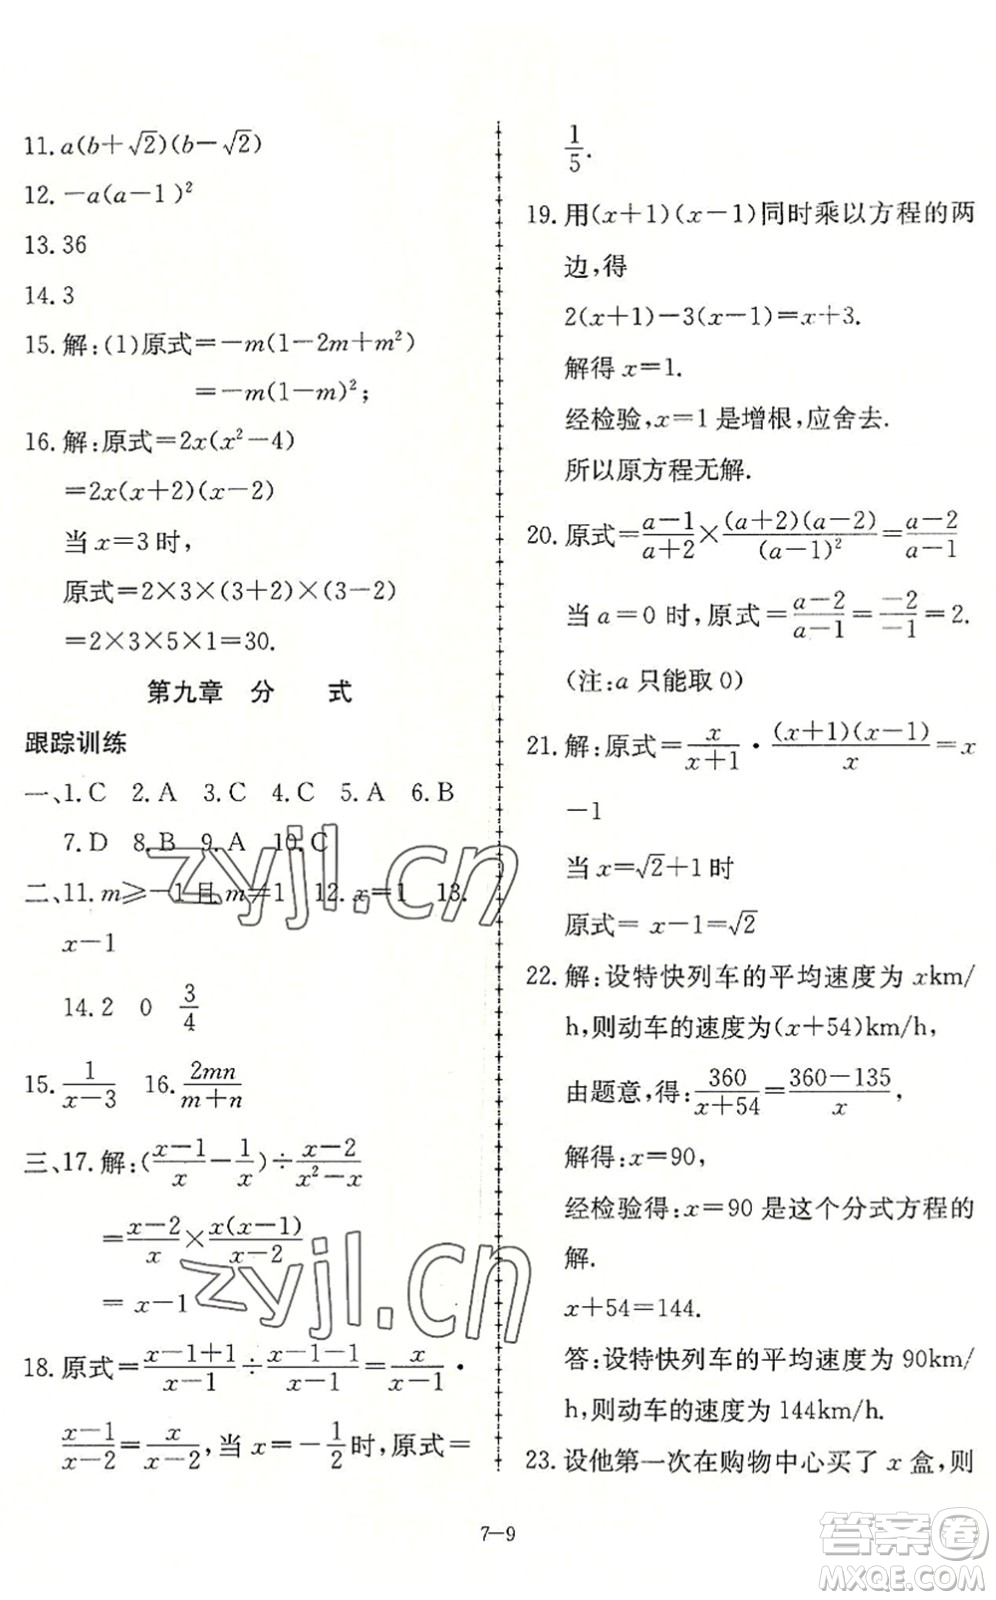 11. a(b+√2)(b−√2)
12. −a(a−1)²
13. 36
14. 3
15. 解:(1)原式=−m(1−2m+m²)
=−m(1−m)²;
16. 解:原式=2x(x²−4)
=2x(x+2)(x−2)
当 x=3 时,
原式=2×3×(3+2)×(3−2)
=2×3×5×1=30.
第九章 分 式
跟踪训练
一、1. C 2. A 3. C 4. C 5. A 6. B
7. D 8. B 9. A 10. C
二、11. m≥−1 且 m≠1 12. x=1 13.
x−1
14. 2 0 3/4
15. 1/(x−3) 16. 2mn/(m+n)
三、17. 解:((x−1)/x − 1/x)÷(x−2)/(x²−x)
=(x−2)/x×x(x−1)/(x−2)
= x−1
18. 原式=(x−1+1)/(x−1)÷(x−1−1)/(x−1)=x/(x−1)·
(x−1)/(x−2)=x/(x−2),当 x=−1/2时,原式=
1/5.
19. 用(x+1)(x−1)同时乘以方程的两
边,得
2(x+1)−3(x−1)=x+3.
解得 x=1.
经检验,x=1 是增根,应舍去.
所以原方程无解.
20. 原式=(a−1)/(a+2)×(a+2)(a−2)/(a−1)²=(a−2)/(a−1)
当 a=0 时,原式=(a−2)/(a−1)=−2/−1=2.
(注:a 只能取 0)
21. 解:原式=x/(x+1)·(x+1)(x−1)/x=x
−1
当 x=√2+1 时
原式= x−1=√2
22. 解:设特快列车的平均速度为 xkm/
h,则动车的速度为(x+54)km/h,
由题意,得:360/(x+54)=(360−135)/x,
解得:x=90,
经检验得:x=90 是这个分式方程的
解.
x+54=144.
答:设特快列车的平均速度为 90km/
h,则动车的速度为 144km/h.
23. 设他第一次在购物中心买了 x 盒,则
7−9
zyjl.cn
zyjl.cn
答案圈
MXQE.COM